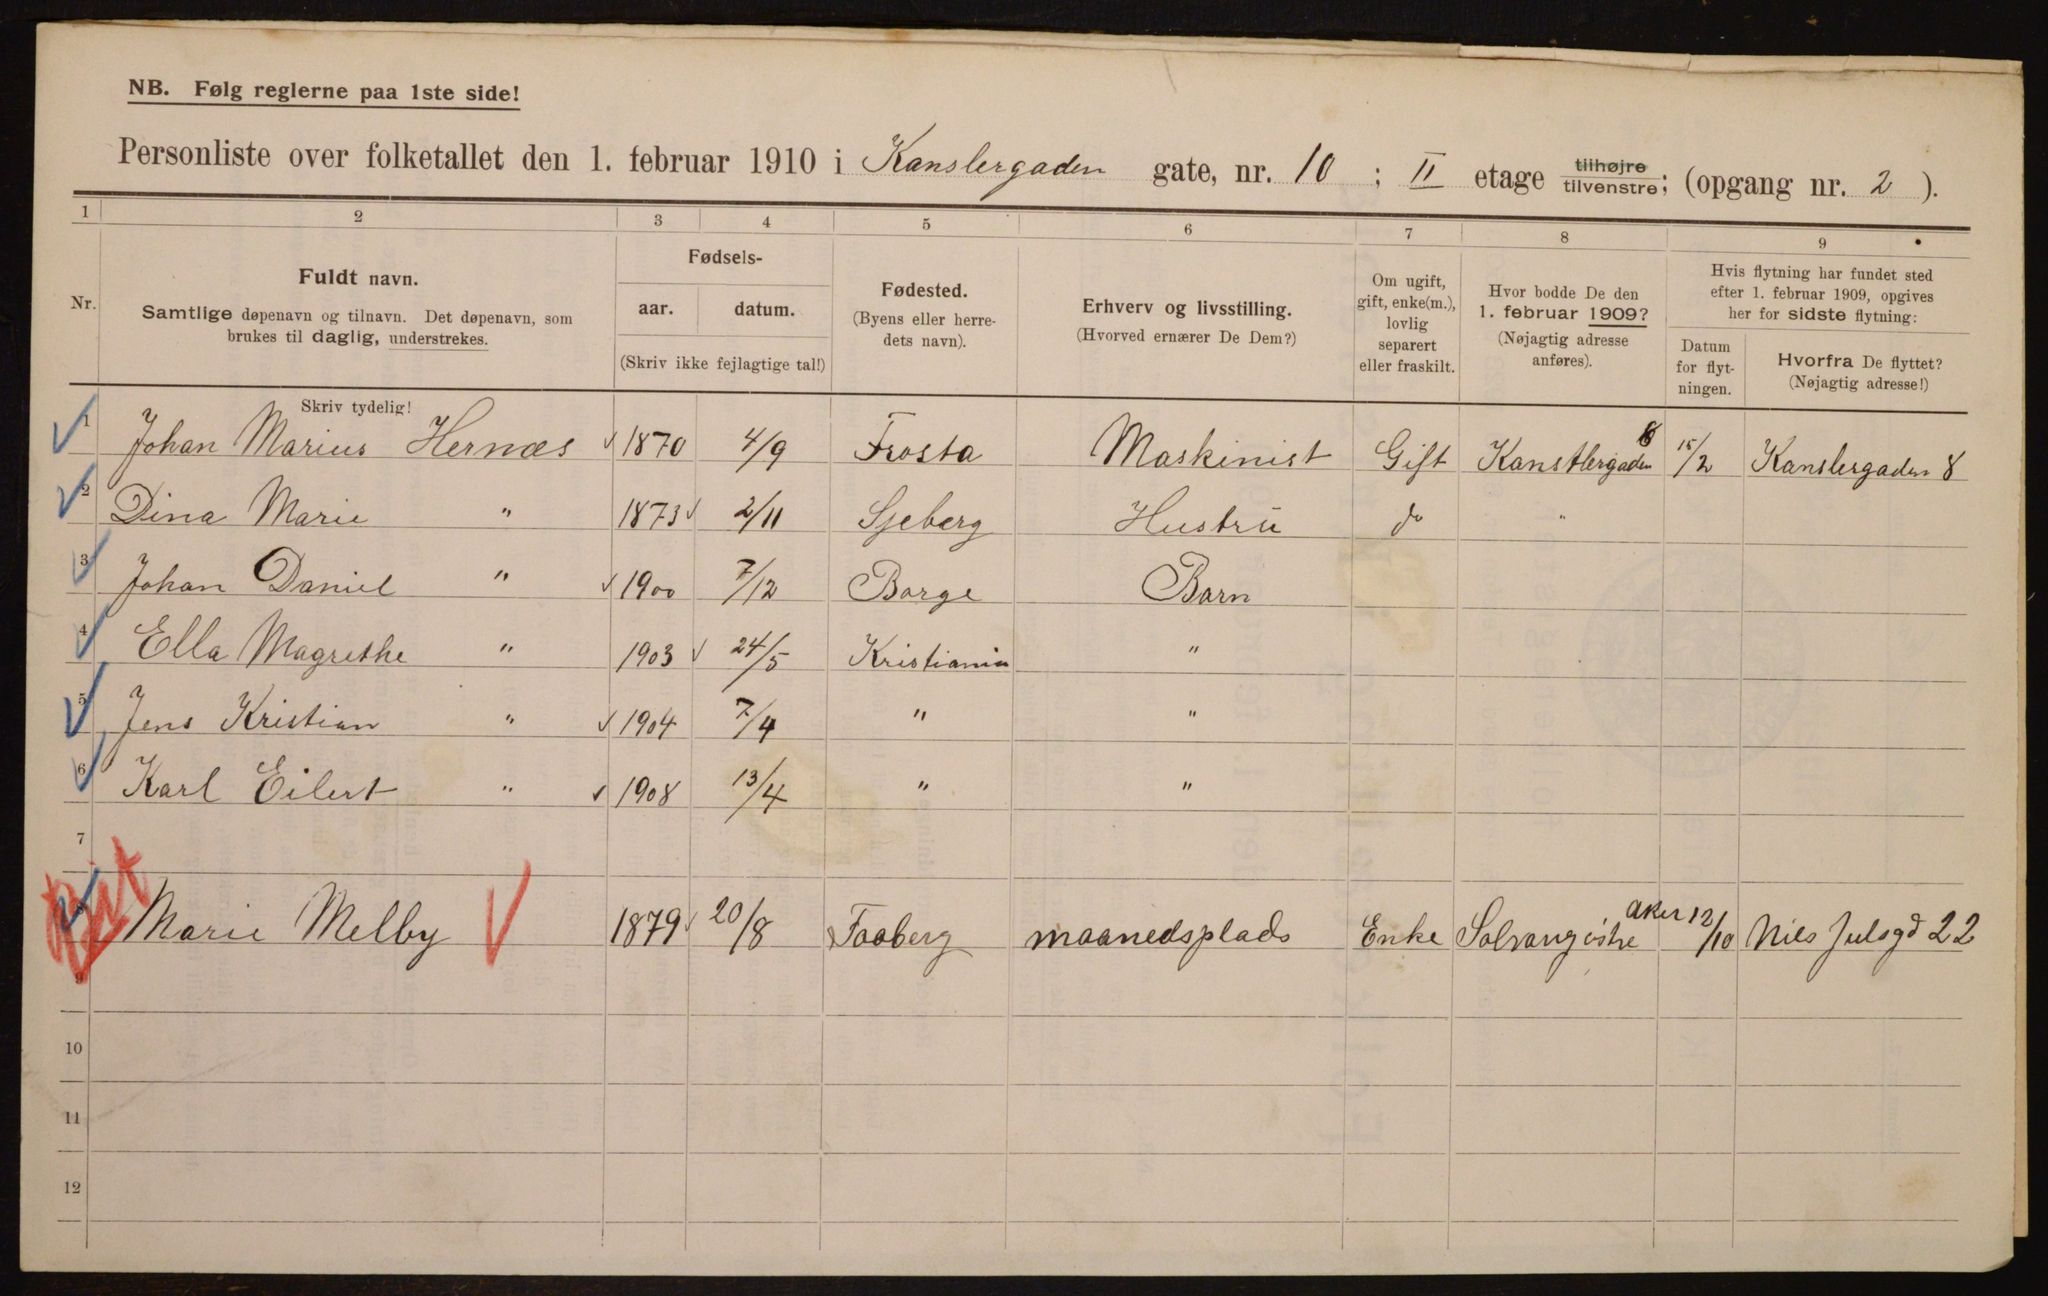 NB. Følg reglerne paa 1ste side!
Personliste over folketallet den 1. februar 1910 i Kanslergaden gate, nr. 10 ; II etage tilhøjre tilvenstre; (opgang nr. 2 ).
1 2 3 4 5 6 7 8 9
Nr.
Fuldt navn.
Samtlige døpenavn og tilnavn. Det døpenavn, som
brukes til daglig, understrekes.
Skriv tydelig!
Fødsels-
aar. datum.
(Skriv ikke fejlagtige tal!)
Fødested.
(Byens eller herre-
dets navn).
Erhverv og livsstilling.
(Hvorved ernærer De Dem?)
Om ugift,
gift, enke(m.),
lovlig
separert
eller fraskilt.
Hvor bodde De den
1. februar 1909?
(Nøjagtig adresse
anføres).
Hvis flytning har fundet sted
efter 1. februar 1909, opgives
her for sidste flytning:
Datum
for flyt-
ningen.
Hvorfra De flyttet?
(Nøjagtig adresse!)
1 Johan Marius Hernæs 1870 4/9 Frosta Maskinist Gift Kanstlergaden 8 15/2 Kanslergaden 8
2 Dina Marie " 1873 2/11 Sjeberg Hustru do "
3 Johan Daniel " 1900 7/12 Borge Barn
4 Ella Magrethe " 1903 24/5 Kristiania "
5 Jens Kristian " 1904 7/4 " "
6 Karl Eilert " 1908 13/4 " "
7
Marie Melby 1879 20/8 Faaberg maanedsplads Enke Solvang østre Aker 12/10 Nils Julsgd 22
9
10
11
12